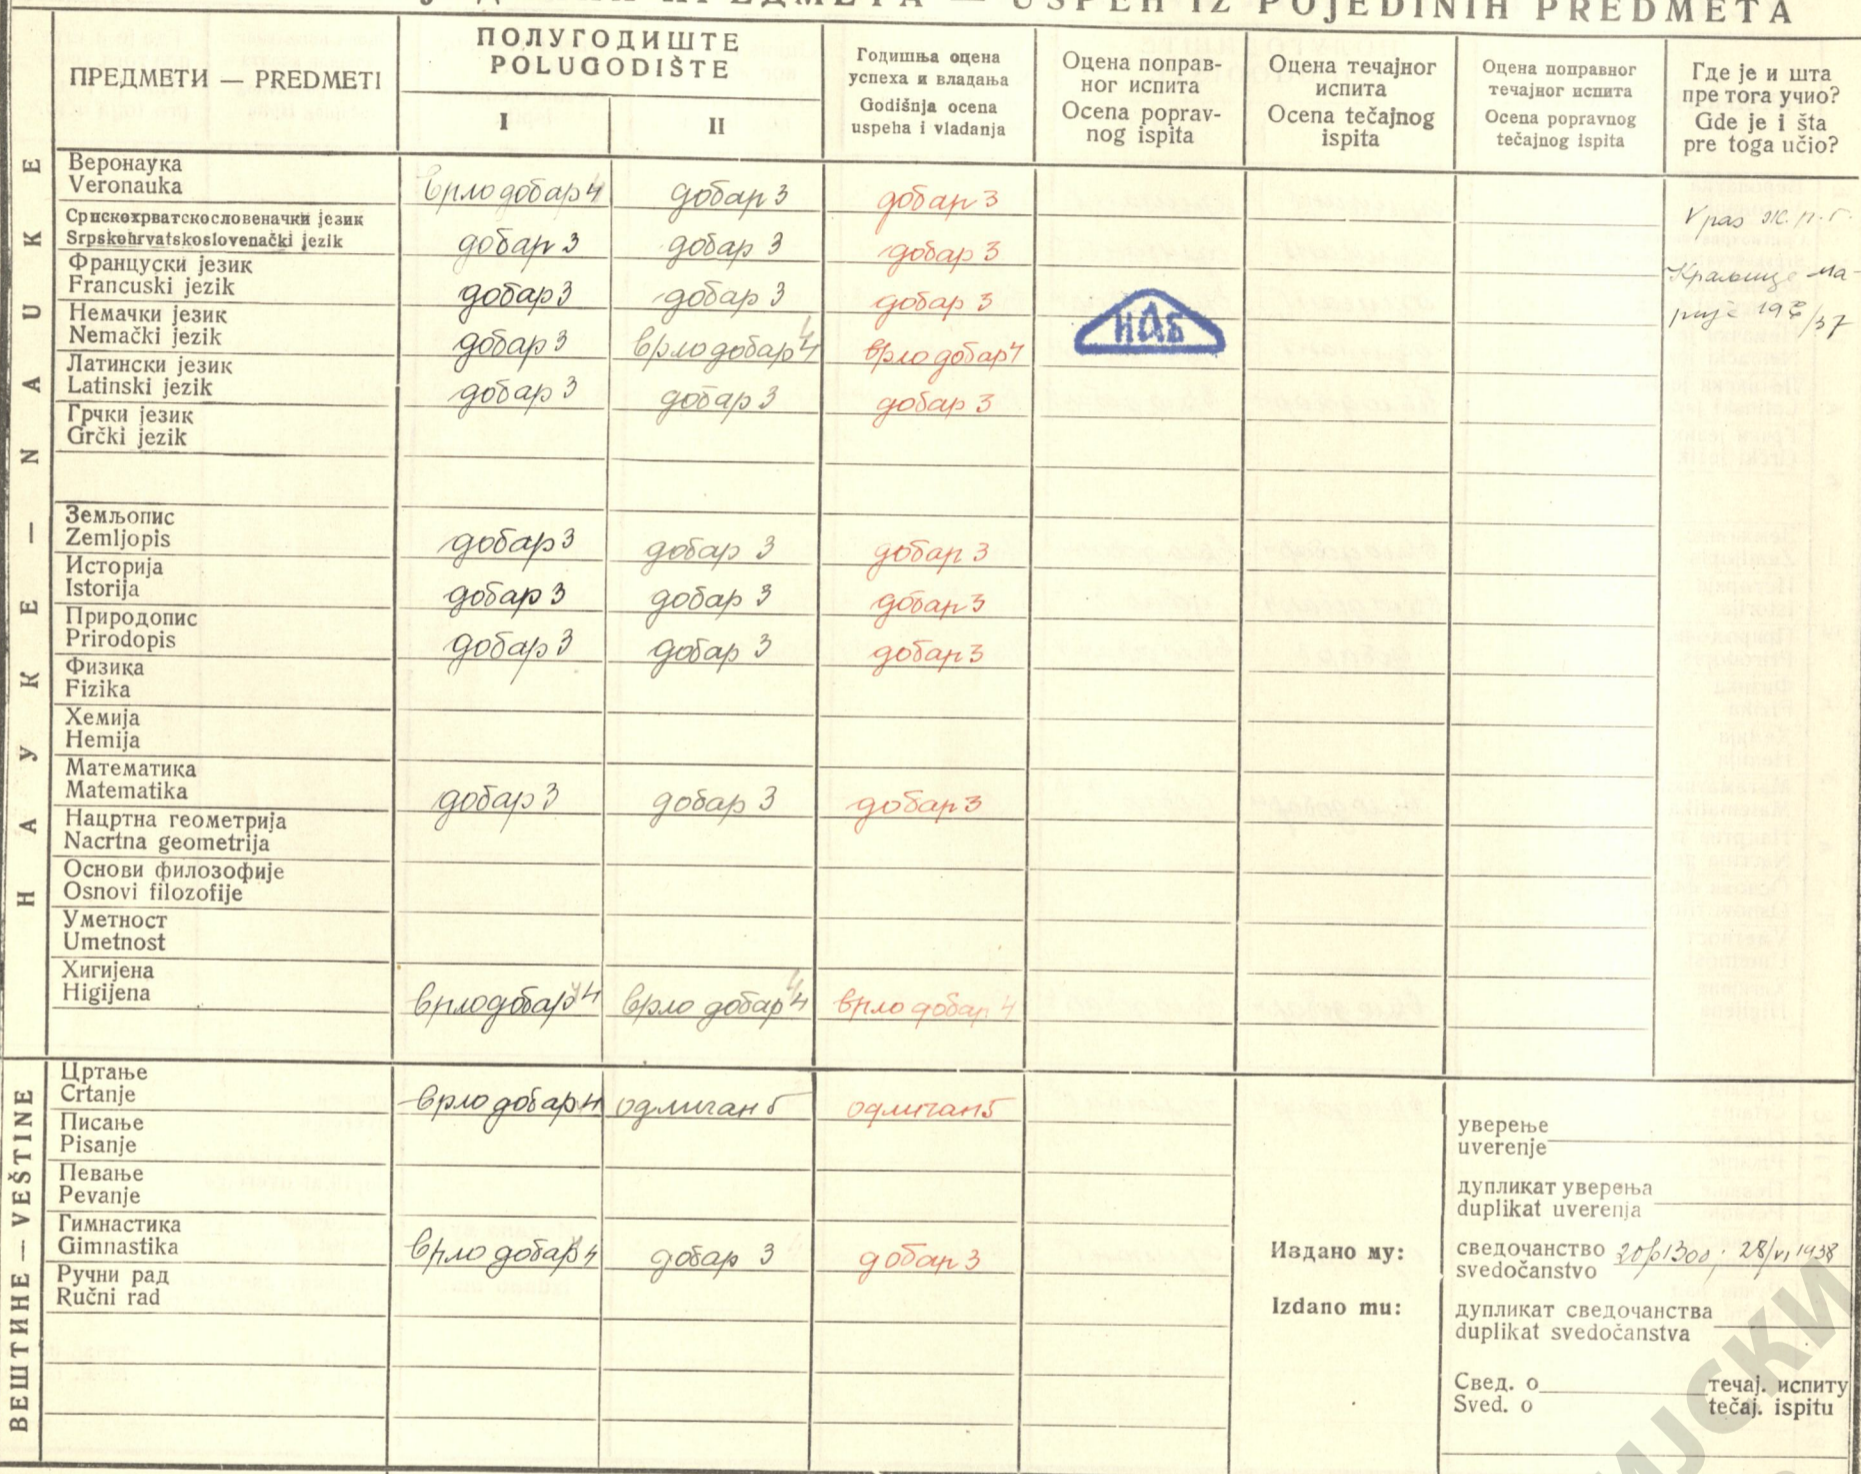 ПРЕДМЕТА — USPEH IZ POJEDINIH PREDMETA
ПРЕДМЕТИ — PREDMETI
ПОЛУГОДИШТЕ
POLUGODIŠTE
I
II
Годишња оцена
успеха и владања
Godišnja ocena
uspeha i vladanja
Оцена поправ-
ног испита
Ocena poprav-
nog ispita
Оцена течајног
испита
Ocena tečajnog
ispita
Оцена поправног
течајног испита
Ocena popravnog
tečajnog ispita
Где је и шта
пре тога учио?
Gde je i šta
pre toga učio?
НАУКЕ — NAUKE
Веронаука
Veronauka
врло добар 4 добар 3 добар 3
Српскохрватскословеначки језик
Srpskohrvatskoslovenački jezik
добар 3 добар 3 добар 3
Француски језик
Francuski jezik
добар 3 добар 3 добар 3
Немачки језик
Nemački jezik
добар 3 врло добар 4 врло добар 4
Латински језик
Latinski jezik
добар 3 добар 3 добар 3
Грчки језик
Grčki jezik
Земљопис
Zemljopis
добар 3 добар 3 добар 3
Историја
Istorija
добар 3 добар 3 добар 3
Природопис
Prirodopis
добар 3 добар 3 добар 3
Физика
Fizika
Хемија
Hemija
Математика
Matematika
добар 3 добар 3 добар 3
Нацртна геометрија
Nacrtna geometrija
Основи филозофије
Osnovi filozofije
Уметност
Umetnost
Хигијена
Higijena
врло добар 4 врло добар 4 врло добар 4
V раз. ж. р. г.
Краљице Ма-
рије /37
НАБ
ВЕШТИНЕ — VEŠTINE
Цртање
Crtanje
врло добар 4 одличан 5 одличан 5
Писање
Pisanje
Певање
Pevanje
Гимнастика
Gimnastika
врло добар 4 добар 3 добар 3
Ручни рад
Ručni rad
Издано му:
Izdano mu:
уверење
uverenje
дупликат уверења
duplikat uverenja
сведочанство 1300; 28/VI 1938
svedočanstvo
дупликат сведочанства
duplikat svedočanstva
Свед. о течај. испиту
Sved. o tečaj. ispitu
ИЈСКИ